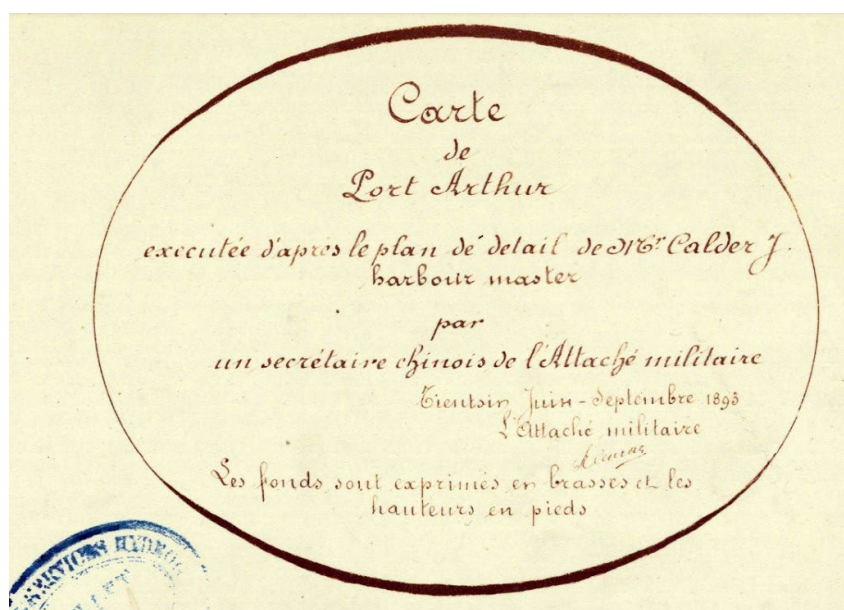 Carte
de
Port Arthur
executée d'après le plan de détail de Mr Calder J.
harbour master
par
un secrétaire chinois de l'Attaché militaire
Tientsin Juin - Septembre 1893
L'Attaché militaire
Les fonds sont exprimés en brasses et les
hauteurs en pieds
SERVICES HYDROG